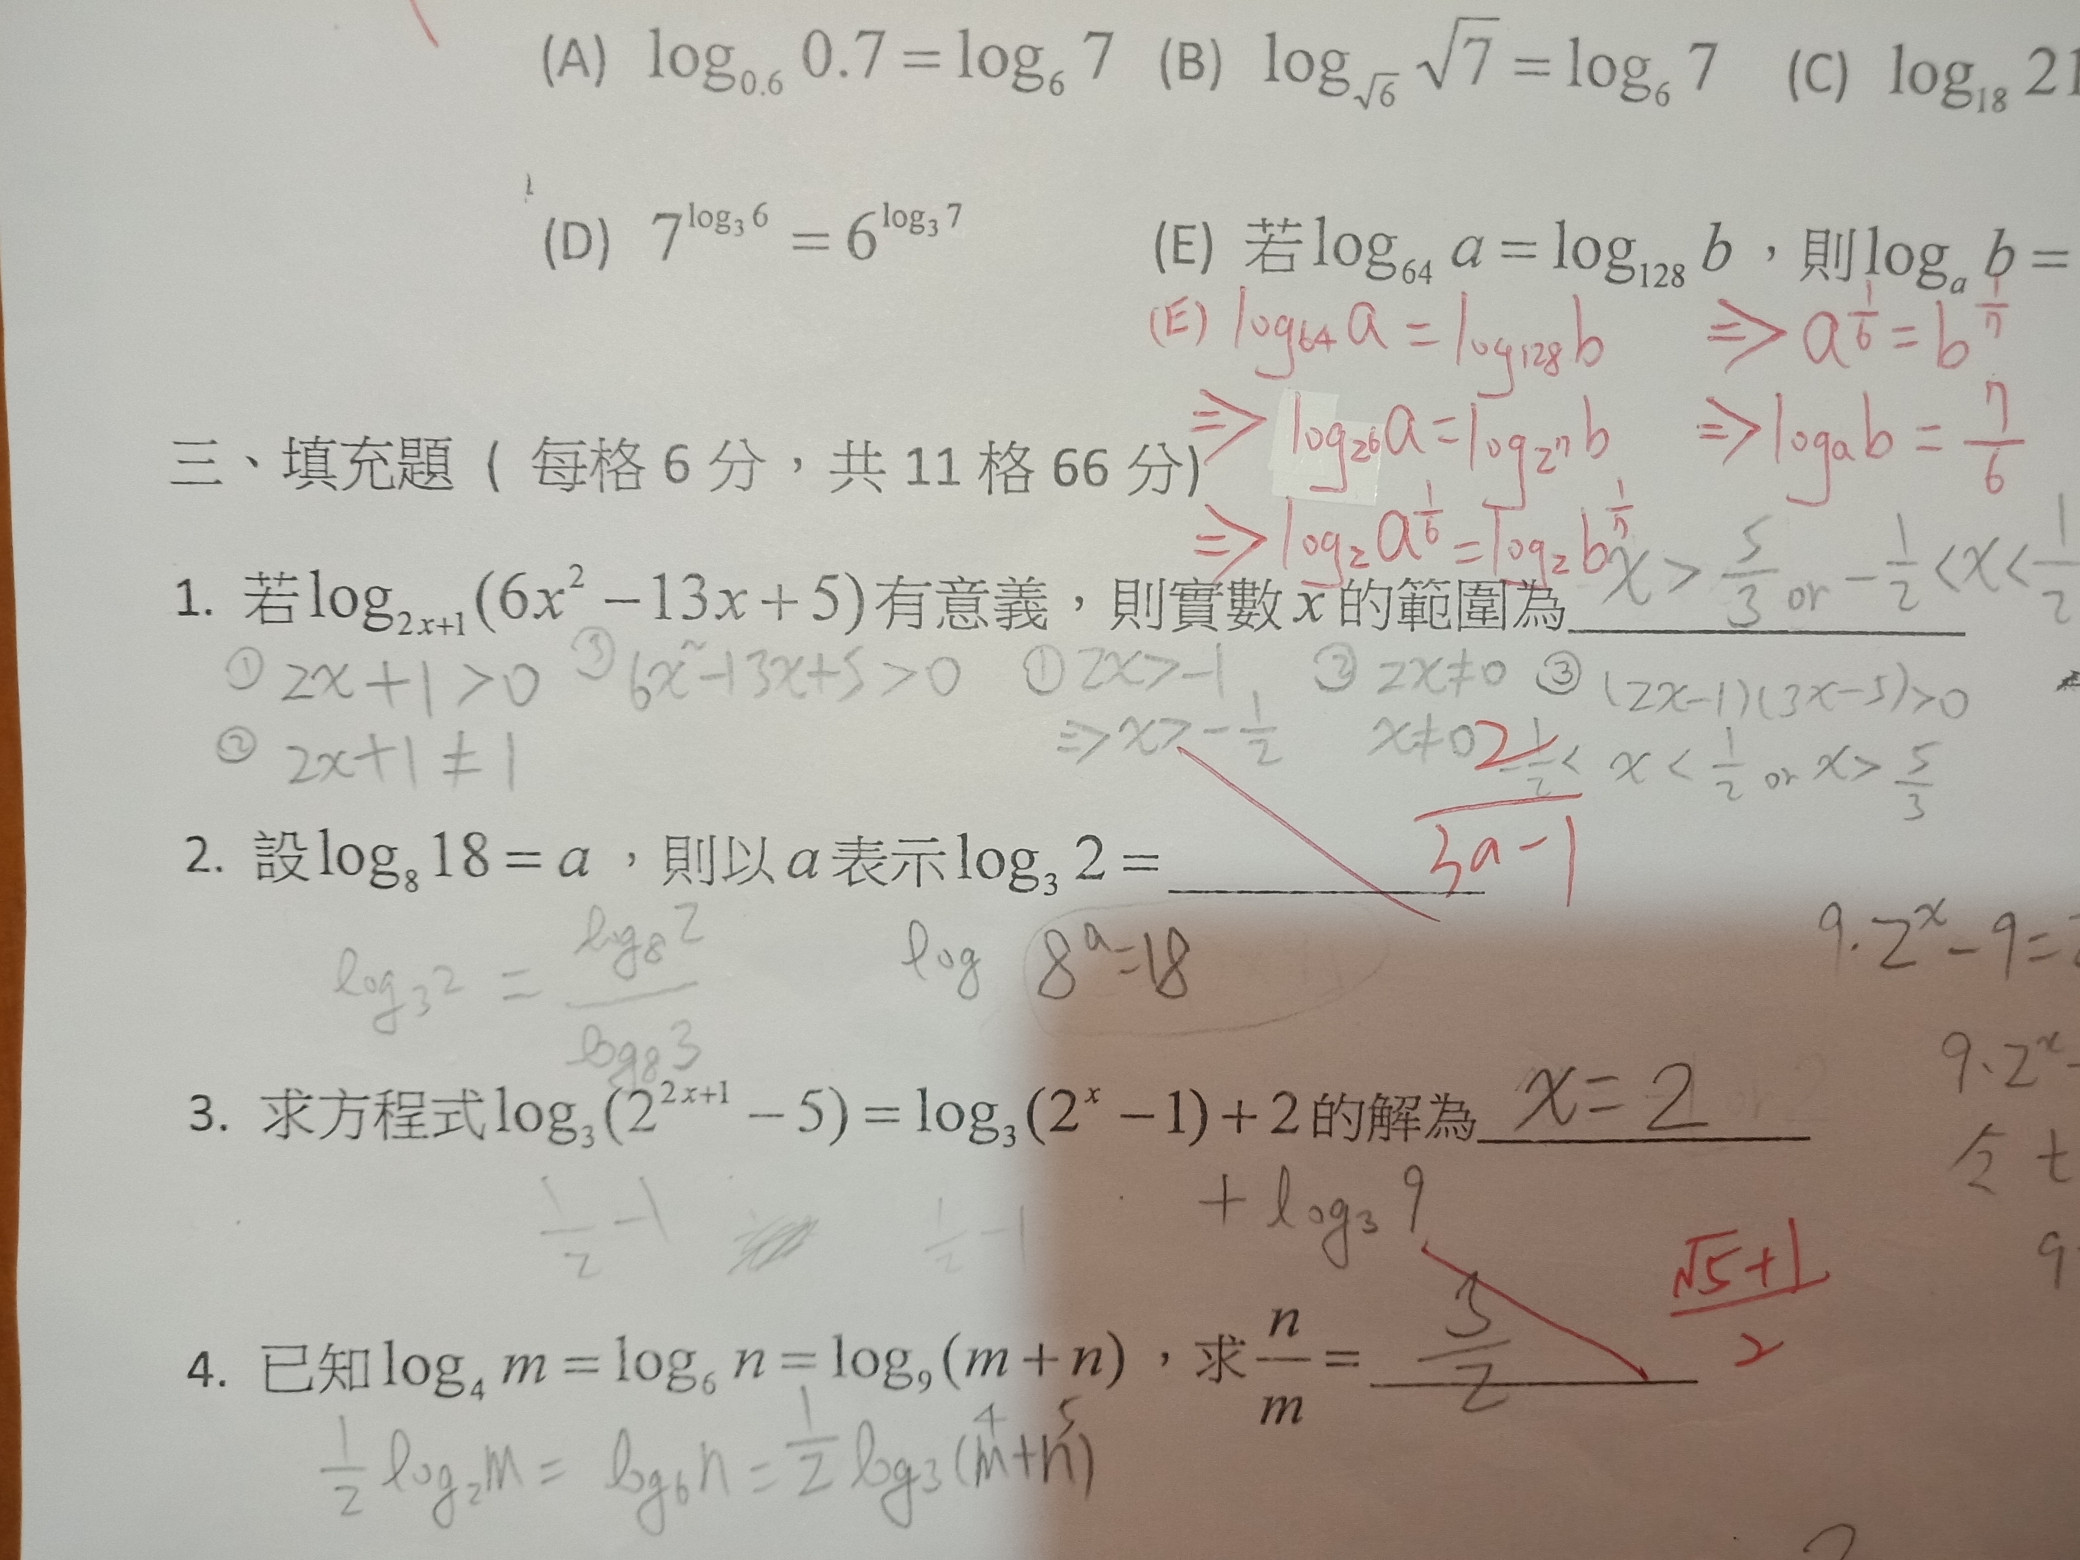 (A) log₀.₆ 0.7 = log₆ 7 (B) log_√6 √7 = log₆ 7 (C) log₁₈ 21
(D) 7^(log₃ 6) = 6^(log₃ 7) (E) 若log₆₄ a = log₁₂₈ b，則logₐ b =
(E) log₆₄ a = log₁₂₈ b ⇒ a^(1/6) = b^(1/7)
⇒ log_2⁶ a = log_2⁷ b ⇒ logₐ b = 7/6
三、填充題 ( 每格 6 分，共 11 格 66 分)
⇒ log₂ a^(1/6) = log₂ b^(1/7)
1. 若log_(2x+1) (6x² − 13x + 5)有意義，則實數 x 的範圍為 x > 5/3 or −1/2 < x < 1/2
① 2x+1 > 0 ③ 6x²−13x+5 > 0 ① 2x > −1 ② 2x ≠ 0 ③ (2x−1)(3x−5) > 0
② 2x+1 ≠ 1 ⇒ x > −1/2 x ≠ 0 −1/2 < x < 1/2 or x > 5/3
2. 設log₈ 18 = a，則以 a 表示log₃ 2 = 2/(3a−1)
log₃ 2 = log₈ 2 / log₈ 3 log 8^a = 18
9·2^x − 9 =
9·2^x
3. 求方程式log₃ (2^(2x+1) − 5) = log₃ (2^x − 1) + 2 的解為 x = 2
1/2 − 1 1/2 − 1 + log₃ 9
4. 已知log₄ m = log₆ n = log₉ (m + n)，求 n/m = 3/2 (√5+1)/2
1/2 log₂ m = log₆ n = 1/2 log₃ (m+n)
4 5